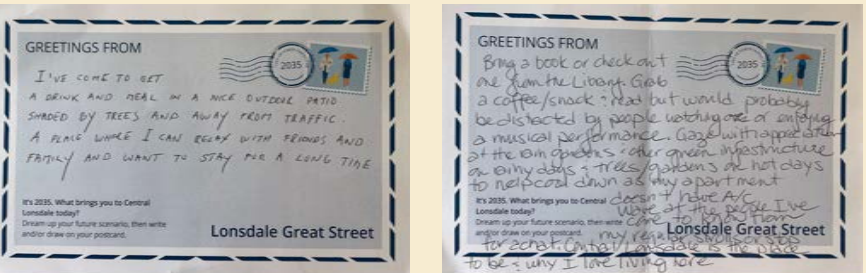 GREETINGS FROM
2035
I'VE COME TO GET
A DRINK AND MEAL IN A NICE OUTDOOR PATIO
SHADED BY TREES AND AWAY FROM TRAFFIC.
A PLACE WHERE I CAN RELAX WITH FRIENDS AND
FAMILY AND WANT TO STAY FOR A LONG TIME
It's 2035. What brings you to Central
Lonsdale today?
Dream up your future scenario, then write
and/or draw on your postcard.
Lonsdale Great Street
GREETINGS FROM
2035
Bring a book or check out
one from the Library. Grab
a coffee/snack & read but would probably
be distracted by people watching or enjoying
a musical performance. Gaze with appreciation
at the rain gardens & other green infrastructure
on rainy days & trees/gardens on hot days
to help cool down as my apartment
doesn't have A/C
Wave at the people I've
come to know from
my regular
for a chat. Central Lonsdale is the place
to be & why I love living here
It's 2035. What brings you to Central
Lonsdale today?
Dream up your future scenario, then write
and/or draw on your postcard.
Lonsdale Great Street